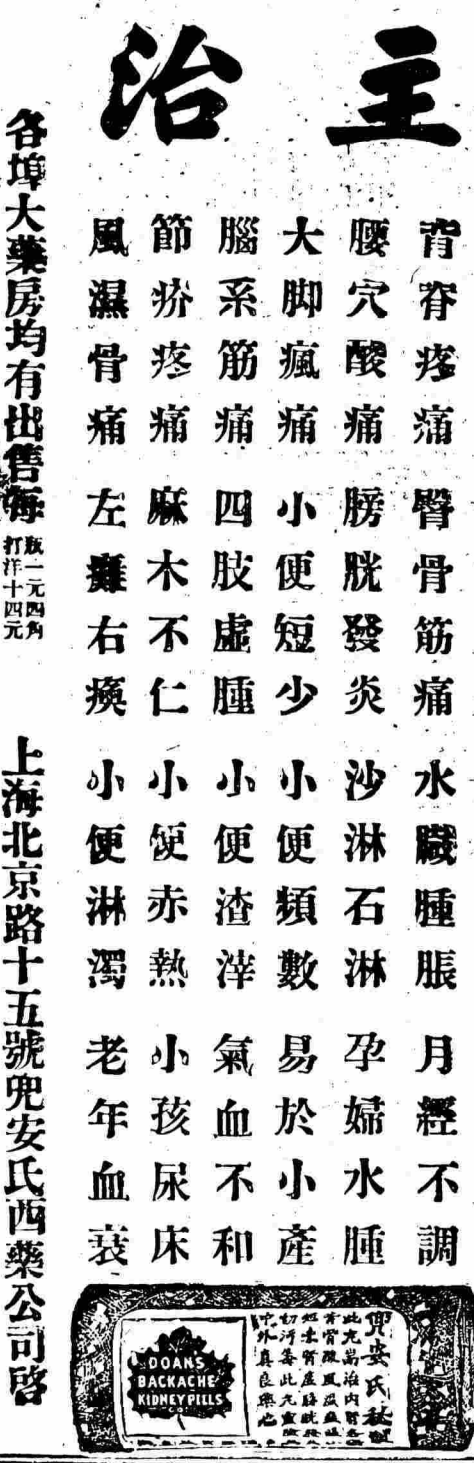 主治
背脊疼痛 臀骨筋痛 水臌腫脹 月經不調
腰穴酸痛 膀胱發炎 沙淋石淋 孕婦水腫
大脚瘋痛 小便短少 小便頻數 易於小產
腦系筋痛 四肢虛腫 小便渣滓 氣血不和
節疥疼痛 麻木不仁 小便赤熱 小孩尿床
風濕骨痛 左癱右瘓 小便淋濁 老年血衰
各埠大藥房均有出售每瓶一元四角打洋十四元
上海北京路十五號兜安氏西藥公司啓
兜安氏
DOANS
BACKACHE
KIDNEY PILLS